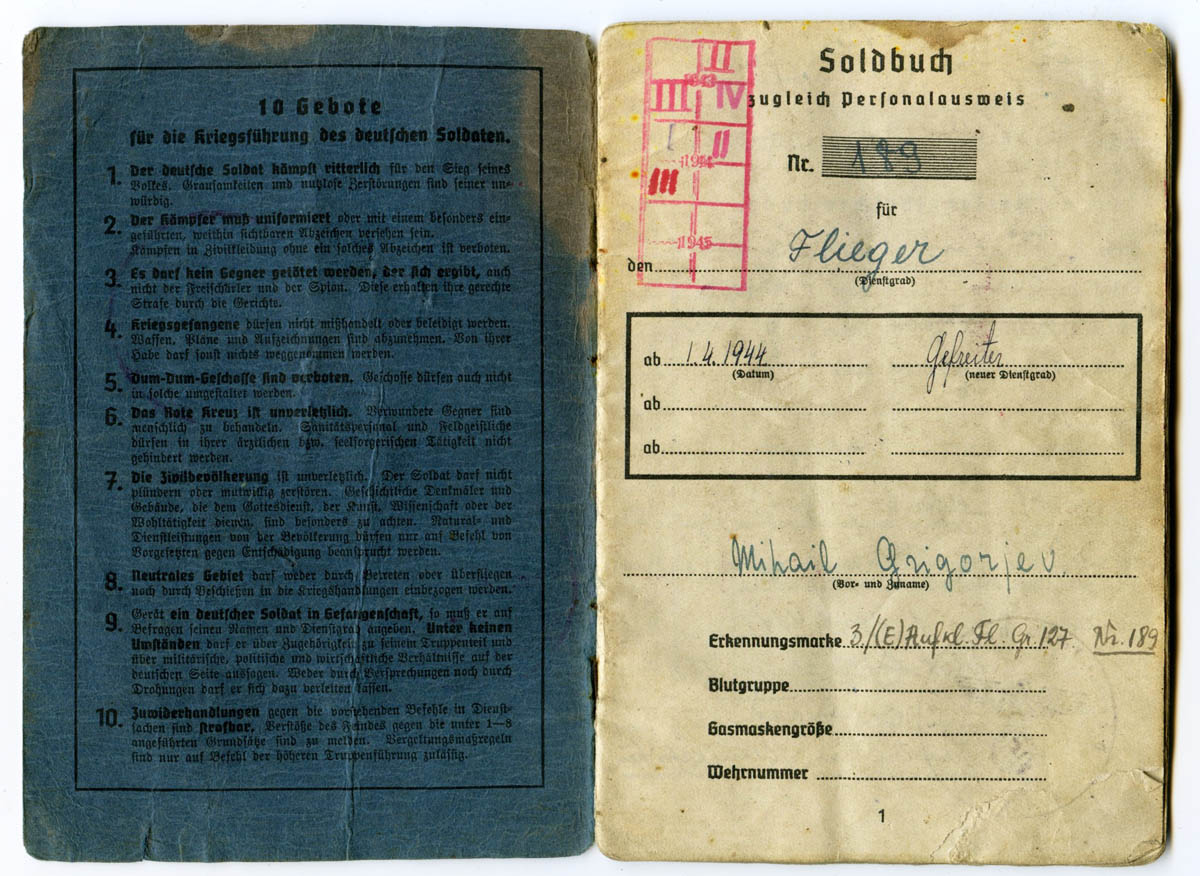 10 Gebote
für die Kriegsführung des deutschen Soldaten.
1. Der deutsche Soldat kämpft ritterlich für den Sieg seines
Volkes. Grausamkeiten und nutzlose Zerstörungen sind seiner un-
würdig.
2. Der Kämpfer muß uniformiert oder mit einem besonders ein-
geführten, weithin sichtbaren Abzeichen versehen sein.
Kämpfen in Zivilkleidung ohne ein solches Abzeichen ist verboten.
3. Es darf kein Gegner getötet werden, der sich ergibt, auch
nicht der Freischärler und der Spion. Diese erhalten ihre gerechte
Strafe durch die Gerichte.
4. Kriegsgefangene dürfen nicht mißhandelt oder beleidigt werden.
Waffen, Pläne und Aufzeichnungen sind abzunehmen. Von ihrer
Habe darf sonst nichts weggenommen werden.
5. Dum-Dum-Geschosse sind verboten. Geschosse dürfen auch nicht
in solche umgestaltet werden.
6. Das Rote Kreuz ist unverletzlich. Verwundete Gegner sind
menschlich zu behandeln. Sanitätspersonal und Feldgeistliche
dürfen in ihrer ärztlichen bzw. seelsorgerischen Tätigkeit nicht
gehindert werden.
7. Die Zivilbevölkerung ist unverletzlich. Der Soldat darf nicht
plündern oder mutwillig zerstören. Geschichtliche Denkmäler und
Gebäude, die dem Gottesdienst, der Kunst, Wissenschaft oder der
Wohltätigkeit dienen, sind besonders zu achten. Natural- und
Dienstleistungen von der Bevölkerung dürfen nur auf Befehl von
Vorgesetzten gegen Entschädigung beansprucht werden.
8. Neutrales Gebiet darf weder durch Betreten oder überfliegen
noch durch Beschießen in die Kriegshandlungen einbezogen werden.
9. Gerät ein deutscher Soldat in Gefangenschaft, so muß er auf
Befragen seinen Namen und Dienstgrad angeben. Unter keinen
Umständen darf er über Zugehörigkeit zu seinem Truppenteil und
über militärische, politische und wirtschaftliche Verhältnisse auf der
deutschen Seite aussagen. Weder durch Versprechungen noch durch
Drohungen darf er sich dazu verleiten lassen.
10. Zuwiderhandlungen gegen die vorstehenden Befehle in Dienst-
sachen sind strafbar. Verstöße des Feindes gegen die unter 1—8
angeführten Grundsätze sind zu melden. Vergeltungsmaßregeln
sind nur auf Befehl der höheren Truppenführung zulässig.
II
1943
III IV
I II
1944
III
1945
Soldbuch
zugleich Personalausweis
Nr. 189
für
den Flieger
(Dienstgrad)
ab 1.4.1944 Gefreiter
(Datum) (neuer Dienstgrad)
ab
ab
Mihail Grigorjev
(Vor- und Zuname)
Erkennungsmarke 3./(E)Aufkl. Fl. Gr. 127 Nr. 189
Blutgruppe
Gasmaskengröße
Wehrnummer
1